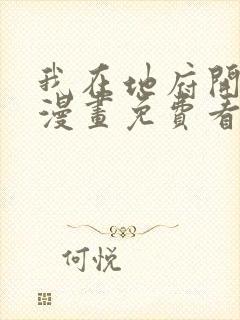 我在地府開
漫畫免費看
何悦